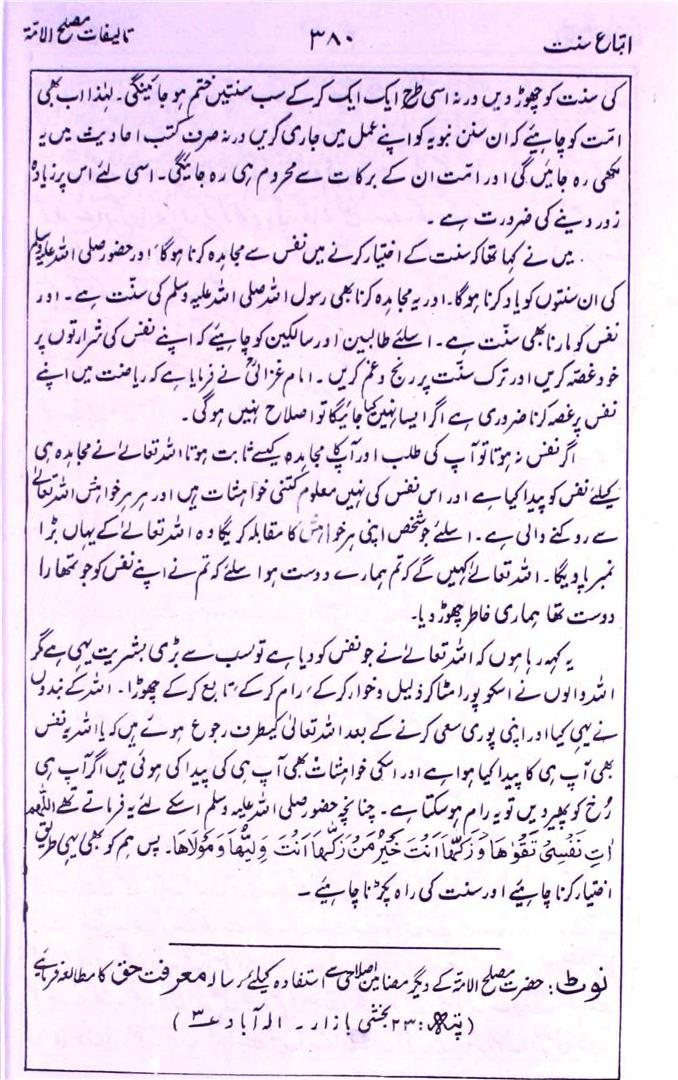 اتباع سنت ۳۸۰ تالیفات مصلح الامۃ
کی سنت کو چھوڑ دیں ورنہ اسی طرح ایک ایک کر کے سب سنتیں ختم ہو جائینگی۔ لہٰذا اب بھی
امت کو چاہیئے کہ ان سنن نبویہ کو اپنے عمل میں جاری کریں ورنہ صرف کتب احادیث میں یہ
لکھی رہ جائیں گی اور امت ان کے برکات سے محروم ہی رہ جائیگی۔ اسی لئے اس پر زیادہ
زور دینے کی ضرورت ہے۔
میں نے کہا تھا کہ سنت کے اختیار کرنے میں نفس سے مجاہدہ کرنا ہوگا، اور حضور صلی اللہ علیہ وسلم
کی ان سنتوں کو یاد کرنا ہوگا۔ اور یہ مجاہدہ کرنا بھی رسول اللہ صلی اللہ علیہ وسلم کی سنّت ہے۔ اور
نفس کو مارنا بھی سنّت ہے۔ اسلئے طالبین اور سالکین کو چاہیئے کہ اپنے نفس کی شرارتوں پر
خود غصہ کریں اور ترک سنّت پر رنج و غم کریں۔ امام غزالیؒ نے فرمایا ہے کہ ریاضت میں اپنے
نفس پر غصہ کرنا ضروری ہے اگر ایسا نہیں کیا جائیگا تو اصلاح نہیں ہوگی۔
اگر نفس نہ ہوتا تو آپ کی طلب اور آپکا مجاہدہ کیسے ثابت ہوتا اللہ تعالےٰ نے مجاہدہ ہی
کیلئے نفس کو پیدا کیا ہے اور اس نفس کی نہیں معلوم کتنی خواہشات ہیں اور ہر ہر خواہش اللہ تعالےٰ
سے روکنے والی ہے۔ اسلئے جو شخص اپنی ہر خواہش کا مقابلہ کریگا وہ اللہ تعالےٰ کے یہاں بڑا
نمبر پاویگا۔ اللہ تعالےٰ کہیں گے کہ تم ہمارے دوست ہو اسلئے کہ تم نے اپنے نفس کو جو تمھارا
دوست تھا ہماری خاطر چھوڑ دیا۔
یہ کہہ رہا ہوں کہ اللہ تعالےٰ نے جو نفس کو دیا ہے تو سب سے بڑی بشریت یہی ہے مگر
اللہ والوں نے اسکو پورا مٹا کر ذلیل و خوار کر کے، رام کر کے، تابع کر کے چھوڑا۔ اللہ کے بندوں
نے یہی کیا اور اپنی پوری سعی کرنے کے بعد اللہ تعالیٰ کیطرف رجوع ہوئے ہیں کہ یا اللہ یہ نفس
بھی آپ ہی کا پیدا کیا ہوا ہے اور اسکی خواہشات بھی آپ ہی کی پیدا کی ہوئی ہیں اگر آپ ہی
رُخ کو پھیر دیں تو یہ رام ہو سکتا ہے۔ چنانچہ حضور صلی اللہ علیہ وسلم اسکے لئے یہ فرماتے تھے اللّٰھم
اٰتِ نَفْسِیْ تَقْوٰھَا وَزَکِّھَا اَنْتَ خَیْرُ مَنْ زَکّٰھَا اَنْتَ وَلِیُّھَا وَمَوْلَاھَا۔ پس ہم کو بھی یہی طریق
اختیار کرنا چاہیئے اور سنت کی راہ پکڑنا چاہیئے۔
نوٹ: حضرت مصلح الامۃؒ کے دیگر مضامین اصلاحی سے استفادہ کیلئے رسالہ معرفت حق کا مطالعہ فرمایئے
(پتہ: ۲۳ بخشی بازار۔ الہ آباد ۳)